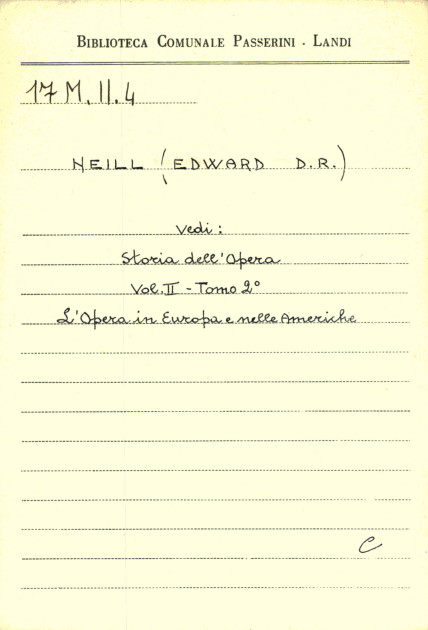 BIBLIOTECA COMUNALE PASSERINI - LANDI
17 M. II. 4
NEILL (EDWARD D.R.)
Vedi:
Storia dell'Opera
Vol. II - Tomo 2°
L'Opera in Europa e nelle Americhe
C